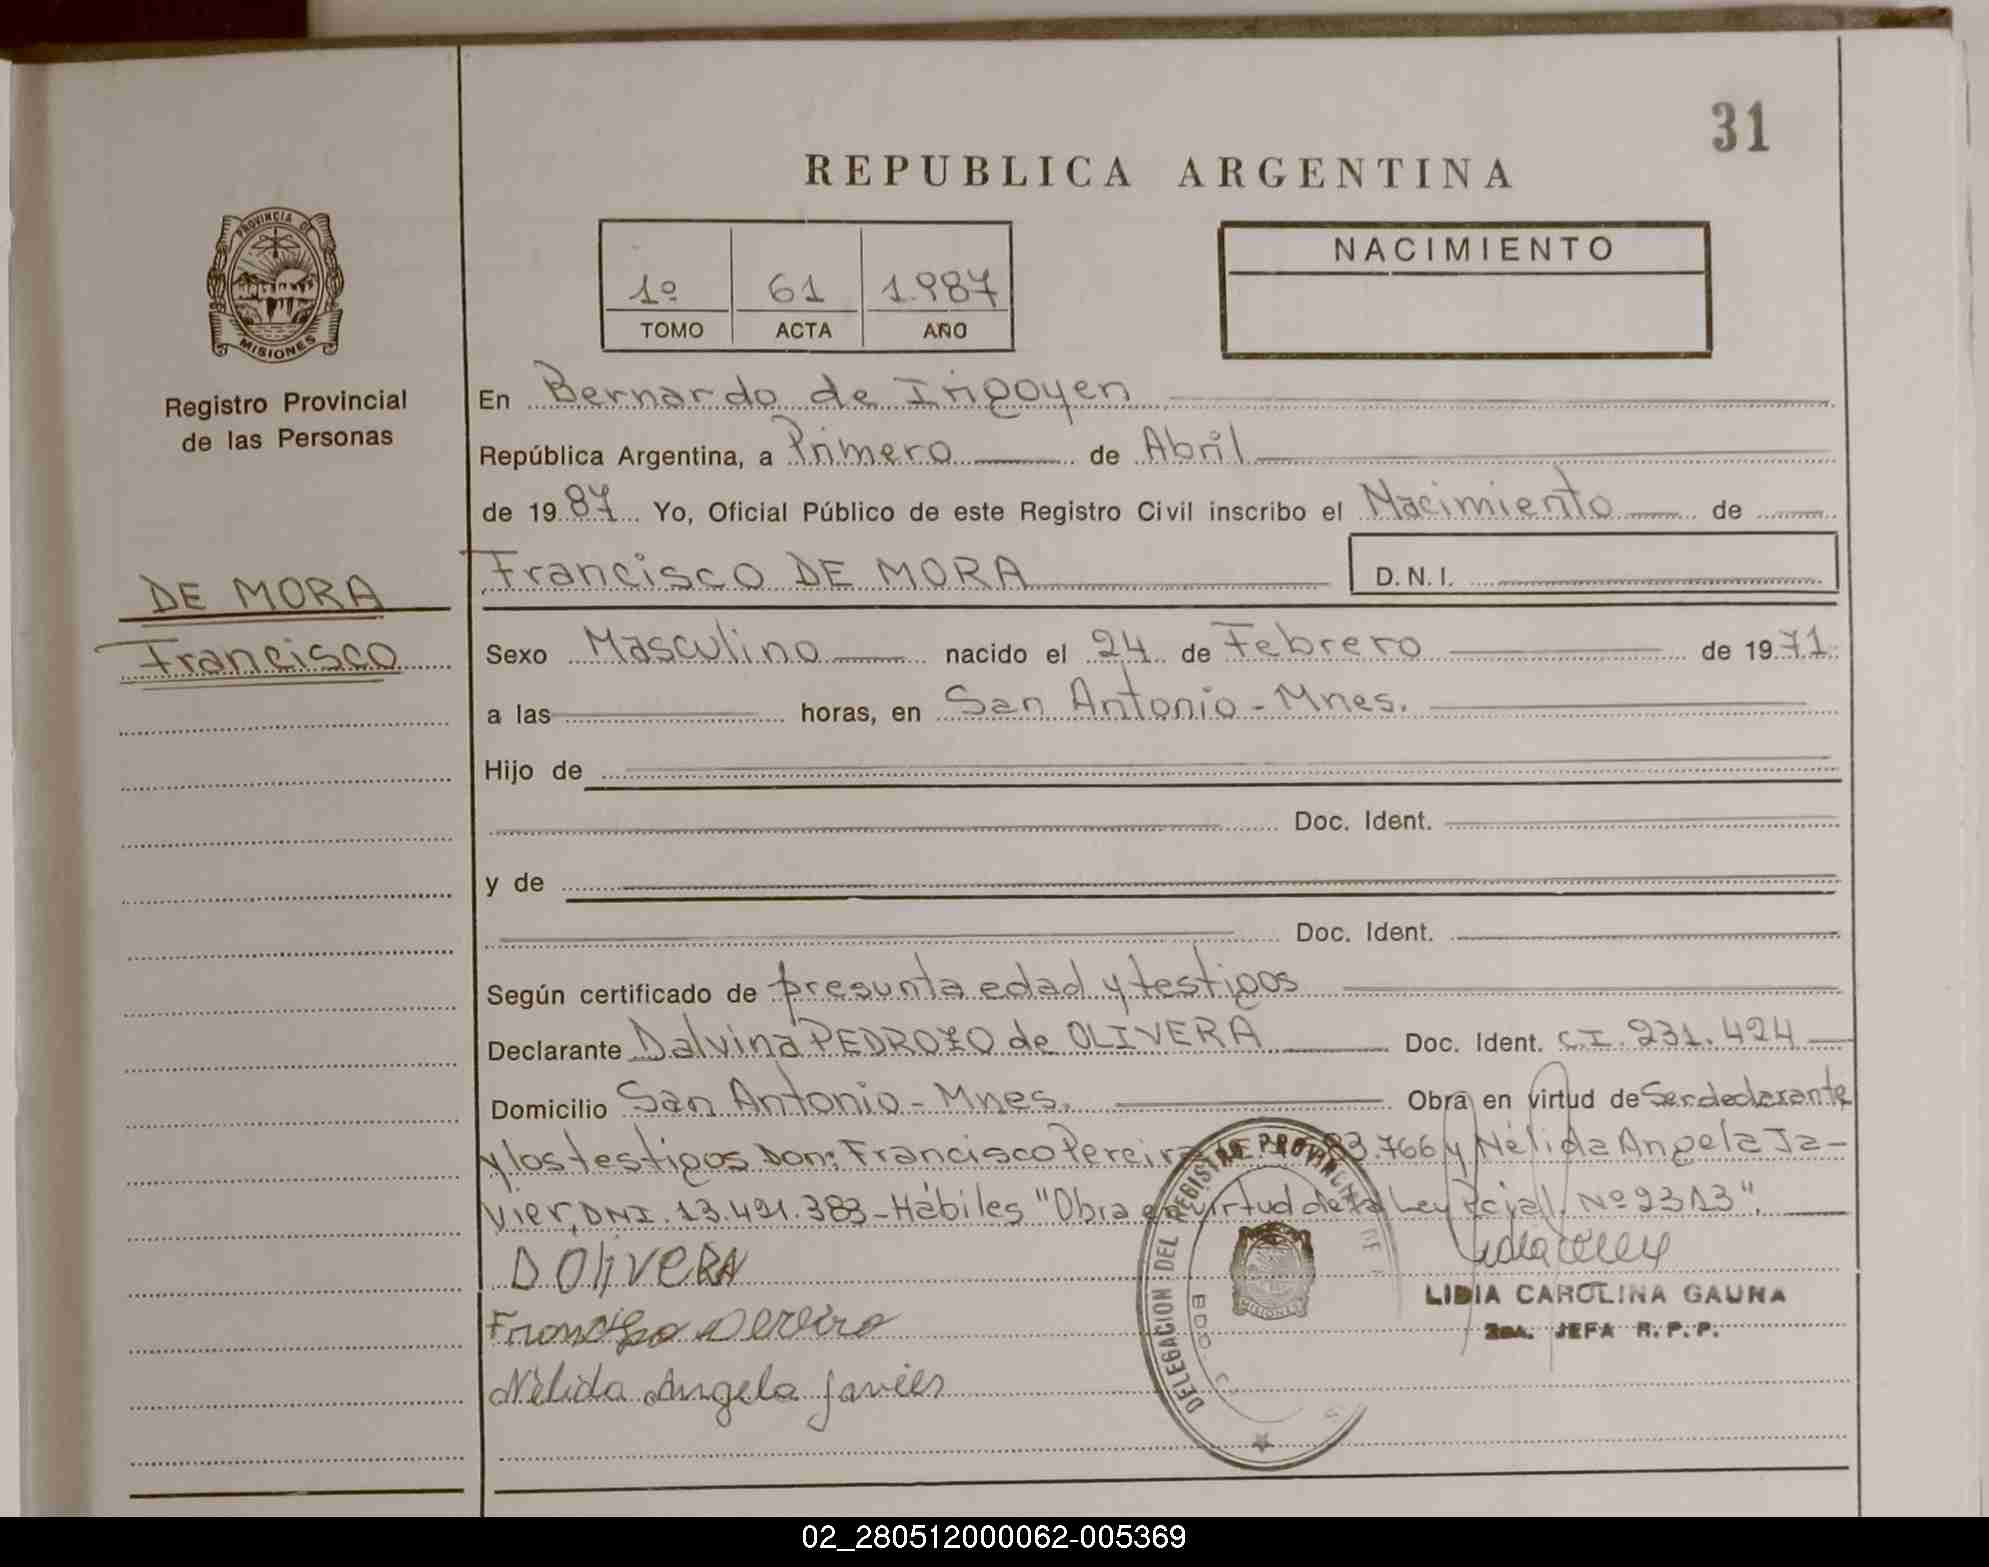 31
REPUBLICA ARGENTINA
PROVINCIA DE
MISIONES
Registro Provincial
de las Personas
1º 61 1.987
TOMO ACTA AÑO
NACIMIENTO
En Bernardo de Irigoyen
República Argentina, a Primero de Abril
de 19 87 Yo, Oficial Público de este Registro Civil inscribo el Nacimiento de
DE MORA
Francisco
Francisco DE MORA D.N.I.
Sexo Masculino nacido el 24 de Febrero de 19 71
a las horas, en San Antonio - Mnes.
Hijo de
Doc. Ident.
y de
Doc. Ident.
Según certificado de presunta edad y testigos
Declarante Dalvina PEDROZO de OLIVERA Doc. Ident. C.I. 231.424
Domicilio San Antonio - Mnes. Obra en virtud de Ser declarante
y los testigos Don: Francisco Pereira 93.766 y Nélida Angela Ja-
vier, DNI. 13.491.383 - Hábiles "Obra en virtud de la Ley Pcial. Nº 2313".
D OliveRA
Francisco Pereira
Nélida Angela Javier
DELEGACION DEL REGISTRO PROVINCIAL DE
BDO.
MISIONES
LIDIA CAROLINA GAUNA
2da. JEFA R.P.P.
02_280512000062-005369